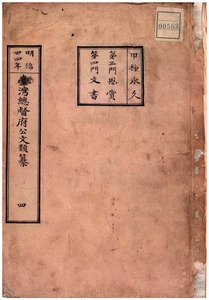 00563
甲種永久
第三門恩賞
第四門文書
明治
廿四年
臺灣總督府公文類纂
四